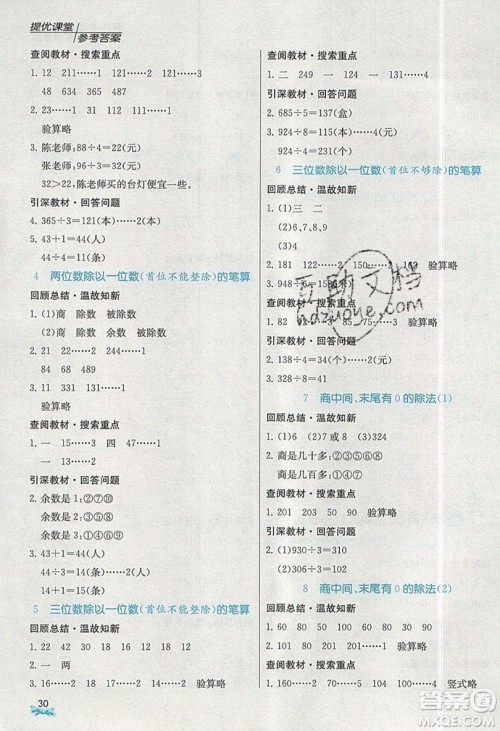 提优课堂
参考答案
查阅教材·搜索重点
1. 12 211……1 231……1
48 634 865
2. 23……1 31 112 111……1
验算略
3. 陈老师:88÷4=22(元)
张老师:96÷3=32(元)
32>22,陈老师买的台灯便宜一些。
引深教材·回答问题
4. 365÷3=121(本)……2(本)
5. 43+1=44(人)
44÷2=22(人)
4 两位数除以一位数(首位不能整除)的笔算
回顾总结·温故知新
1. (1)商 除数 被除数
(2)商 除数 余数 被除数
2. 21 22……2 11……4
3. 验算略
查阅教材·搜索重点
1. 一 15……3 四 47……1
一 15……2 验算略
引深教材·回答问题
2. 余数是1:①⑦⑩
余数是2:③⑤⑥
余数是0:②④⑧⑨
3. 43+1=44(条)
44÷3=14(条)……2(条)
14+1=15(条)
5 三位数除以一位数(首位不能整除)的笔算
回顾总结·温故知新
1. 42 33 22 18 29 12 18
2. 一 两
3. 16……2 17……2 18……4 验算略
30
查阅教材·搜索重点
1. 二 249 一 124 一 131……2
验算略
引深教材·回答问题
2. 685÷5=137(盒)
3. 924÷8=115(本)……4(本)
4. 923÷8=115……3
6 三位数除以一位数(首位不够除)的笔算
回顾总结·温故知新
1. (1)三 二
(2)6,7,8,9
2. 181 229……2 150……2
验算略
3. 948÷6=158(米)
查阅教材·搜索重点
1. 87 31……2 82 75……1 验算略
引深教材·回答问题
2. 138÷4=34(个)……2(个)
3. 328÷8=41
7 商中间、末尾有0的除法(1)
回顾总结·温故知新
1. (1)4 (2)7或8
2. 商是几十多:②④⑤⑥
商是几百多:①③⑦⑧
查阅教材·搜索重点
1. 201 203 50 90 验算略
引深教材·回答问题
2. (930-30)÷3=300(元)
3. 930÷3=310
8 商中间、末尾有0的除法(2)
查阅教材·搜索重点
1. 160 157……4 101……5 竖式略